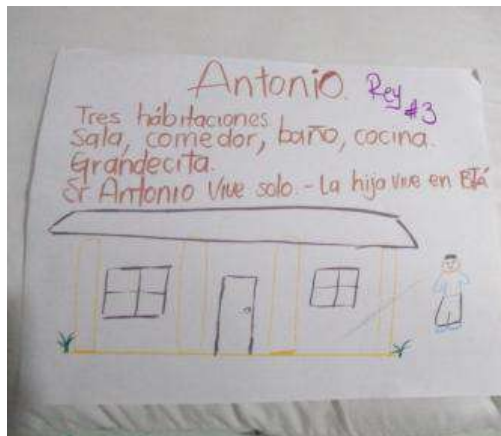 Antonio. Rey #3
Tres hábitaciones
Sala, comedor, baño, cocina.
Grandecita.
Sr Antonio Vive solo. - La hija vive en BTá